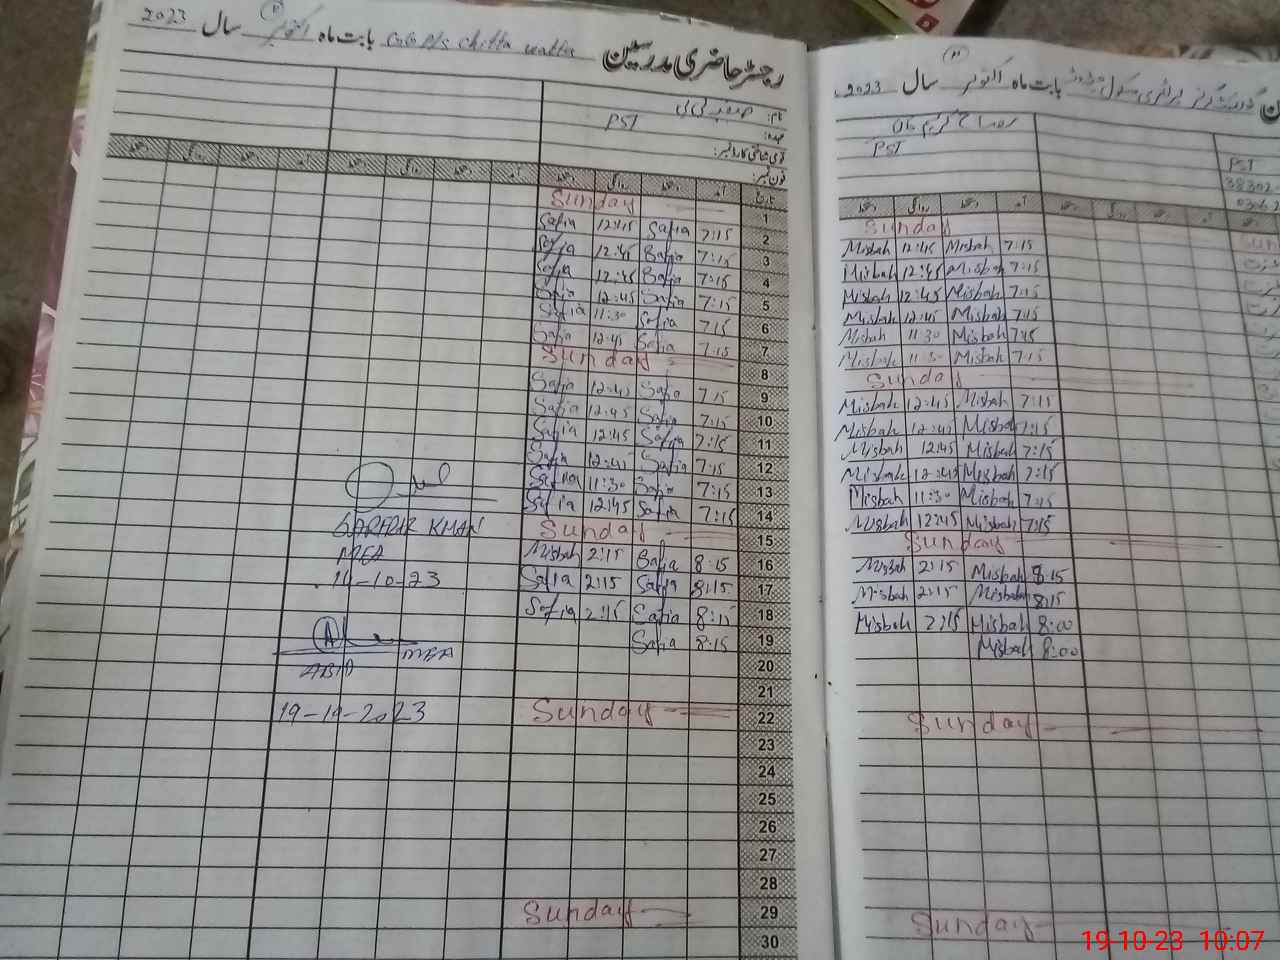 رجسٹر حاضری مدرسین GGP/S Chitta watta بابت ماہ اکتوبر سال 2023
نام: صفیہ بی بی
عہدہ: PST
قومی شناختی کارڈ نمبر:
فون نمبر:
تاریخ آمد دستخط روانگی دستخط آمد دستخط روانگی دستخط آمد دستخط روانگی دستخط
1 Sunday
2 7:15 Safia 12:45 Safia
3 7:15 Safia 12:45 Safia
4 7:15 Safia 12:45 Safia
5 7:15 Safia 12:45 Safia
6 7:15 Safia 11:30 Safia
7 7:15 Safia 12:45 Safia
8 Sunday
9 7:15 Safia 12:45 Safia
10 7:15 Safia 12:45 Safia
11 7:15 Safia 12:45 Safia
12 7:15 Safia 12:45 Safia
13 7:15 Safia 11:30 Safia
14 7:15 Safia 12:45 Safia
15 Sunday
16 8:15 Safia 2:15 Misbah
17 8:15 Safia 2:15 Safia
18 8:15 Safia 2:15 Safia
19 8:15 Safia
20
21
22 Sunday
23
24
25
26
27
28
29 Sunday
30
KHAN
MEA
-10-23
ABID MEA
19-10-2023
گورنمنٹ گرلز پرائمری سکول بابت ماہ اکتوبر سال 2023
PST
PST
آمد دستخط روانگی دستخط آمد دستخط روانگی دستخط
Sunday
7:15 Misbah 12:45 Misbah
7:15 Misbah 12:45 Misbah
7:15 Misbah 12:45 Misbah
7:15 Misbah 12:45 Misbah
7:15 Misbah 11:30 Misbah
7:15 Misbah 11:30 Misbah
Sunday
7:15 Misbah 12:45 Misbah
7:15 Misbah 12:45 Misbah
7:15 Misbah 12:45 Misbah
7:15 Misbah 12:45 Misbah
7:15 Misbah 11:30 Misbah
7:15 Misbah 12:45 Misbah
Sunday
8:15 Misbah 2:15 Misbah
8:15 Misbah 2:15 Misbah
8:00 Misbah 2:15 Misbah
8:00 Misbah
Sunday
Sunday
19-10-23 10:07